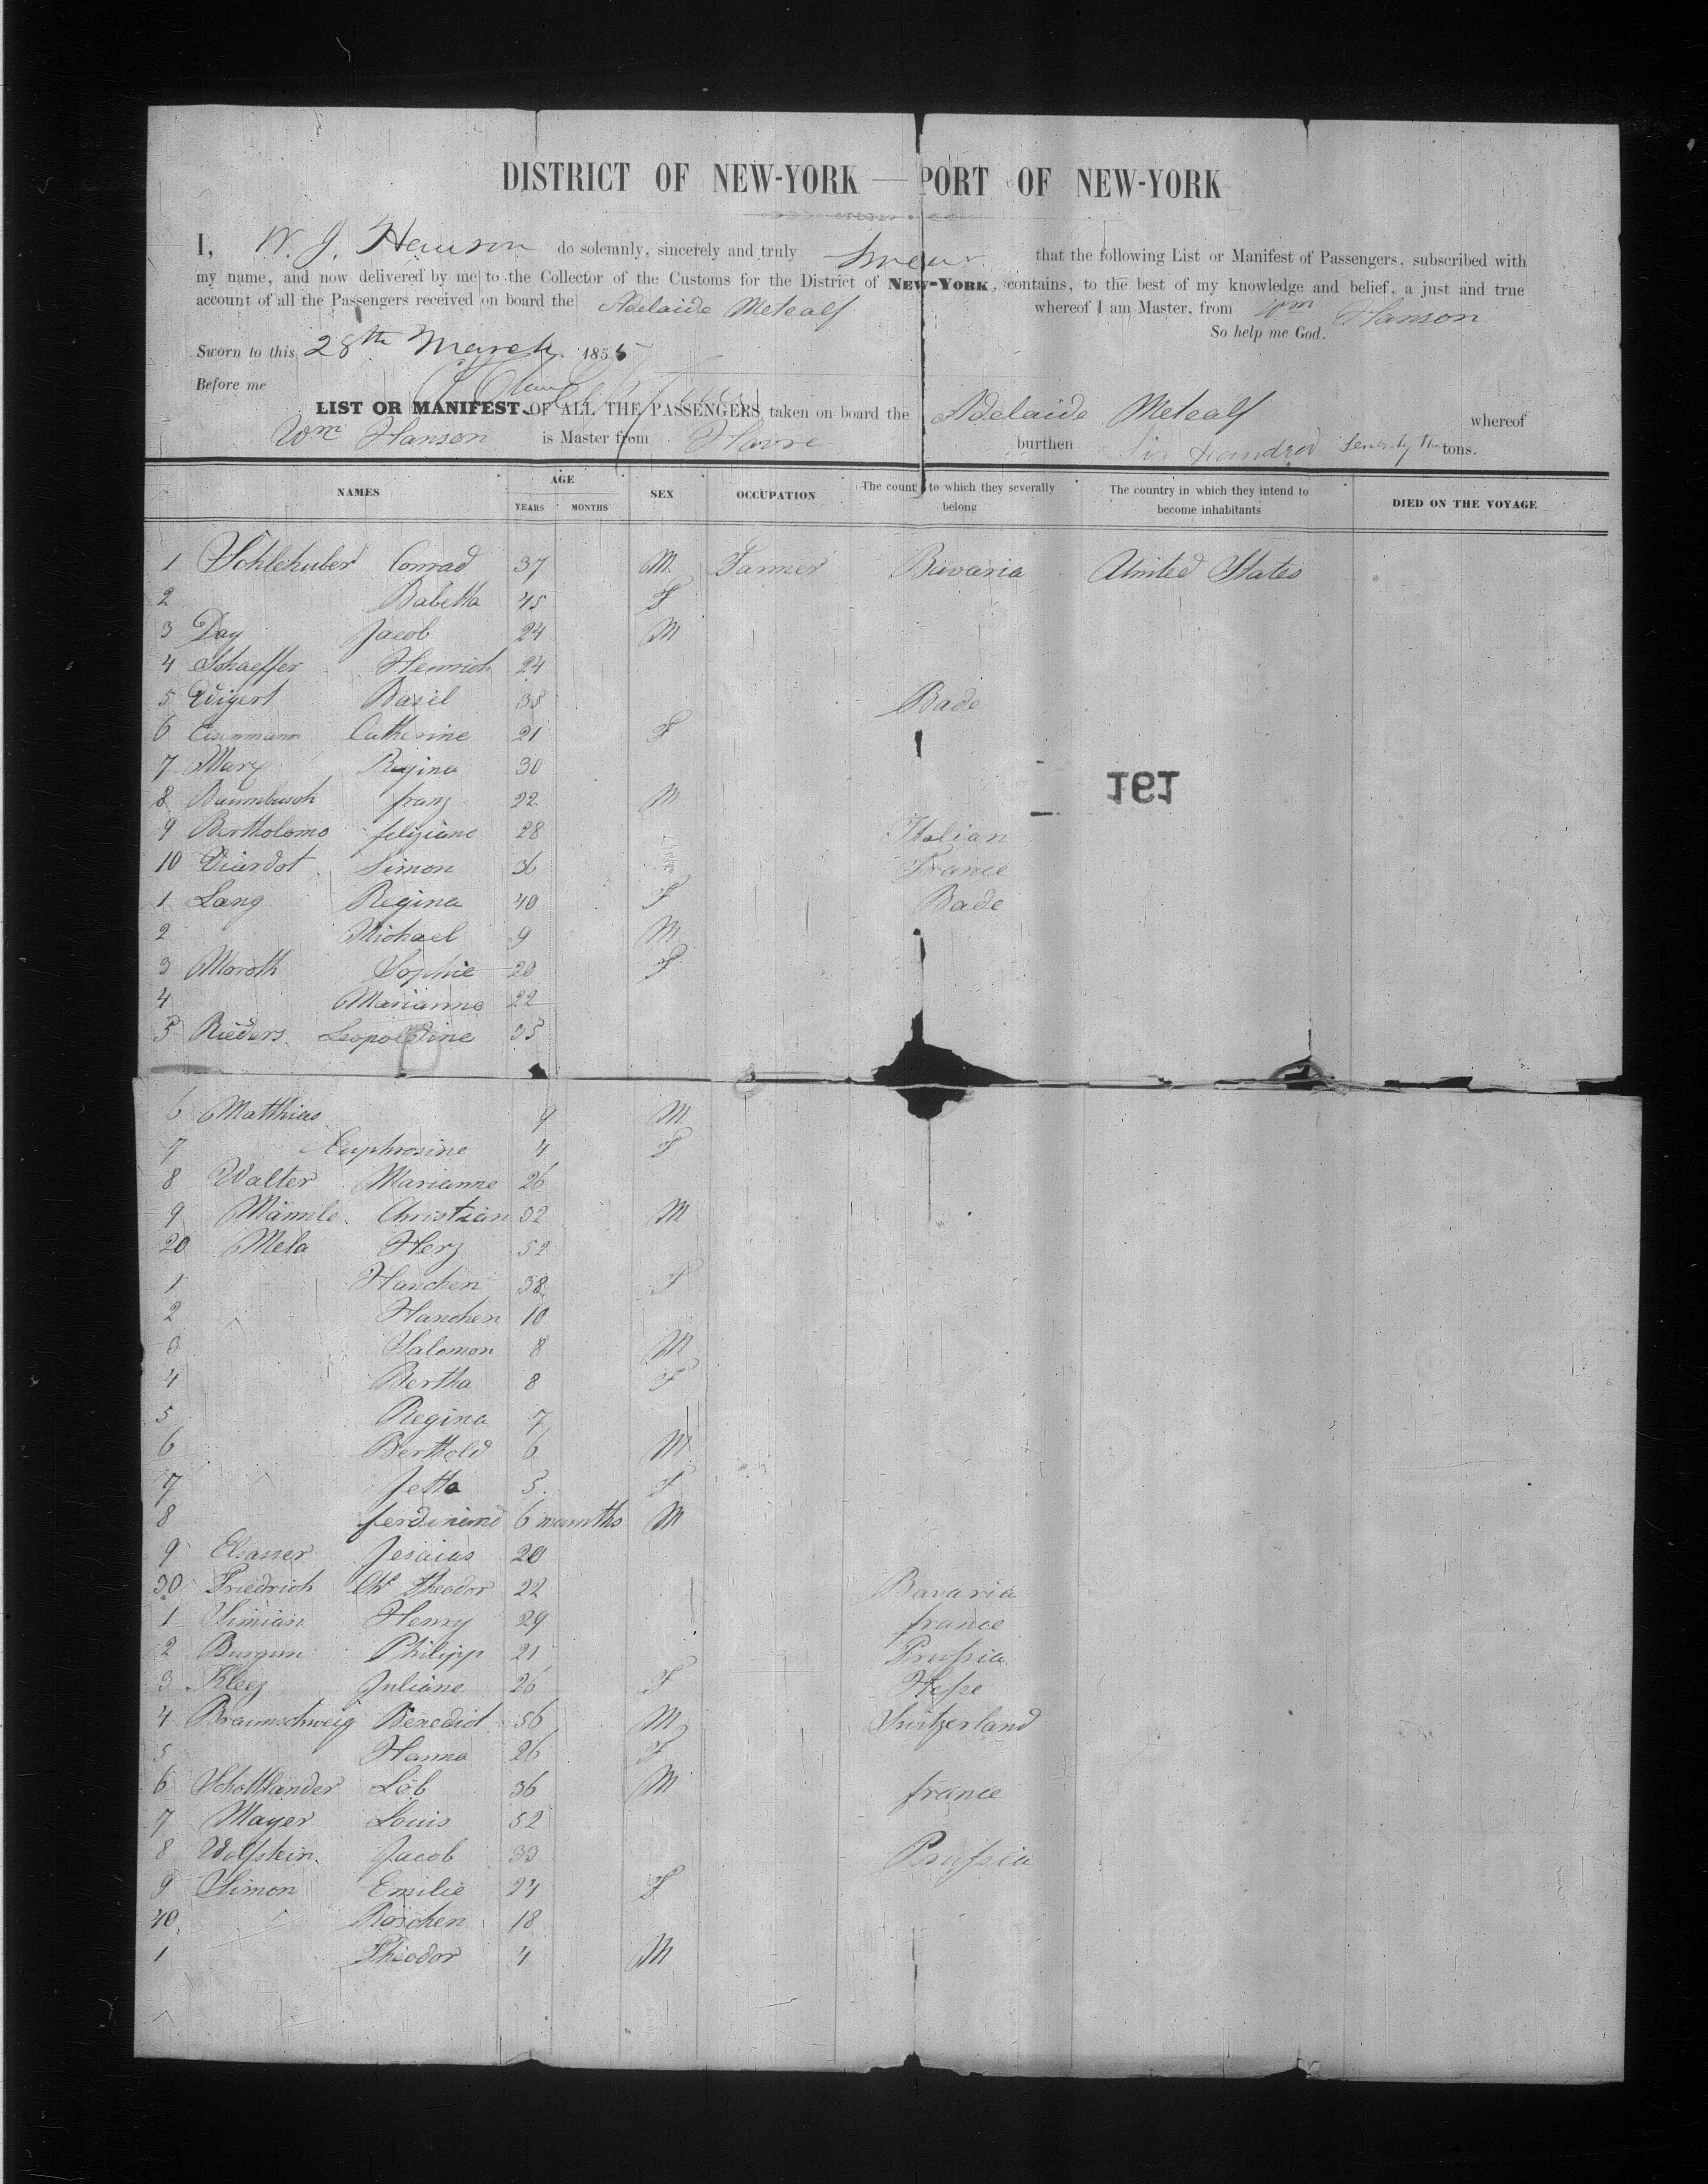 DISTRICT OF NEW-YORK — PORT OF NEW-YORK
I, W. J. Hanson do solemnly, sincerely and truly swear that the following List or Manifest of Passengers, subscribed with
my name, and now delivered by me to the Collector of the Customs for the District of NEW-YORK, contains, to the best of my knowledge and belief, a just and true
account of all the Passengers received on board the Adelaide Metcalf whereof I am Master, from Wm Hanson
So help me God.
Sworn to this 28th March 1855
Before me
LIST OR MANIFEST OF ALL THE PASSENGERS taken on board the Adelaide Metcalf whereof
Wm Hanson is Master from Havre burthen Six Hundred Seventy tons.
NAMES AGE YEARS MONTHS SEX OCCUPATION The country to which they severally belong The country in which they intend to become inhabitants DIED ON THE VOYAGE
1 Schlehuber Conrad 37 M Farmer Bavaria United States
2 Babetta 45 F
3 Day Jacob 24 M
4 Schaeffer Heinrich 24
5 Wigert Basil 35 Bade
6 Eisenmann Catherine 21 F
7 Marx Regina 30
161
8 Baumbusch franz 22 M
9 Bertholomo feliziano 28 Italian
10 Viardot Simon 36 France
1 Lang Regina 40 F Bade
2 Michael 9 M
3 Moroth Sophie 20 F
4 Marianne 22
5 Rieders Leopoldine 35
6 Matthias 9 M
7 Euphrosine 4 F
8 Walter Marianne 26
9 Mämile Christian 32 M
20 Mela Herz 52
1 Hanchen 38 F
2 Hanchen 10
3 Salomon 8 M
4 Bertha 8 F
5 Regina 7
6 Berthold 6 M
7 Jetta 5 F
8 ferdinand 6 mounths M
9 Elsasser Jesaias 20
30 Friedrich Chr Theodor 22 Bavaria
1 Simian Henry 29 france
2 Burgun Philipp 21 Prussia
3 Kleez Juliane 26 F Hesse
4 Braunschweig Benedict 56 M Switzerland
5 Hanna 26 F
6 Schottlander Löb 36 M france
7 Mayer Louis 52
8 Wolfstein Jacob 33 Prussia
9 Simon Emilie 24 F
40 Röschen 18
1 Theodor 4 M